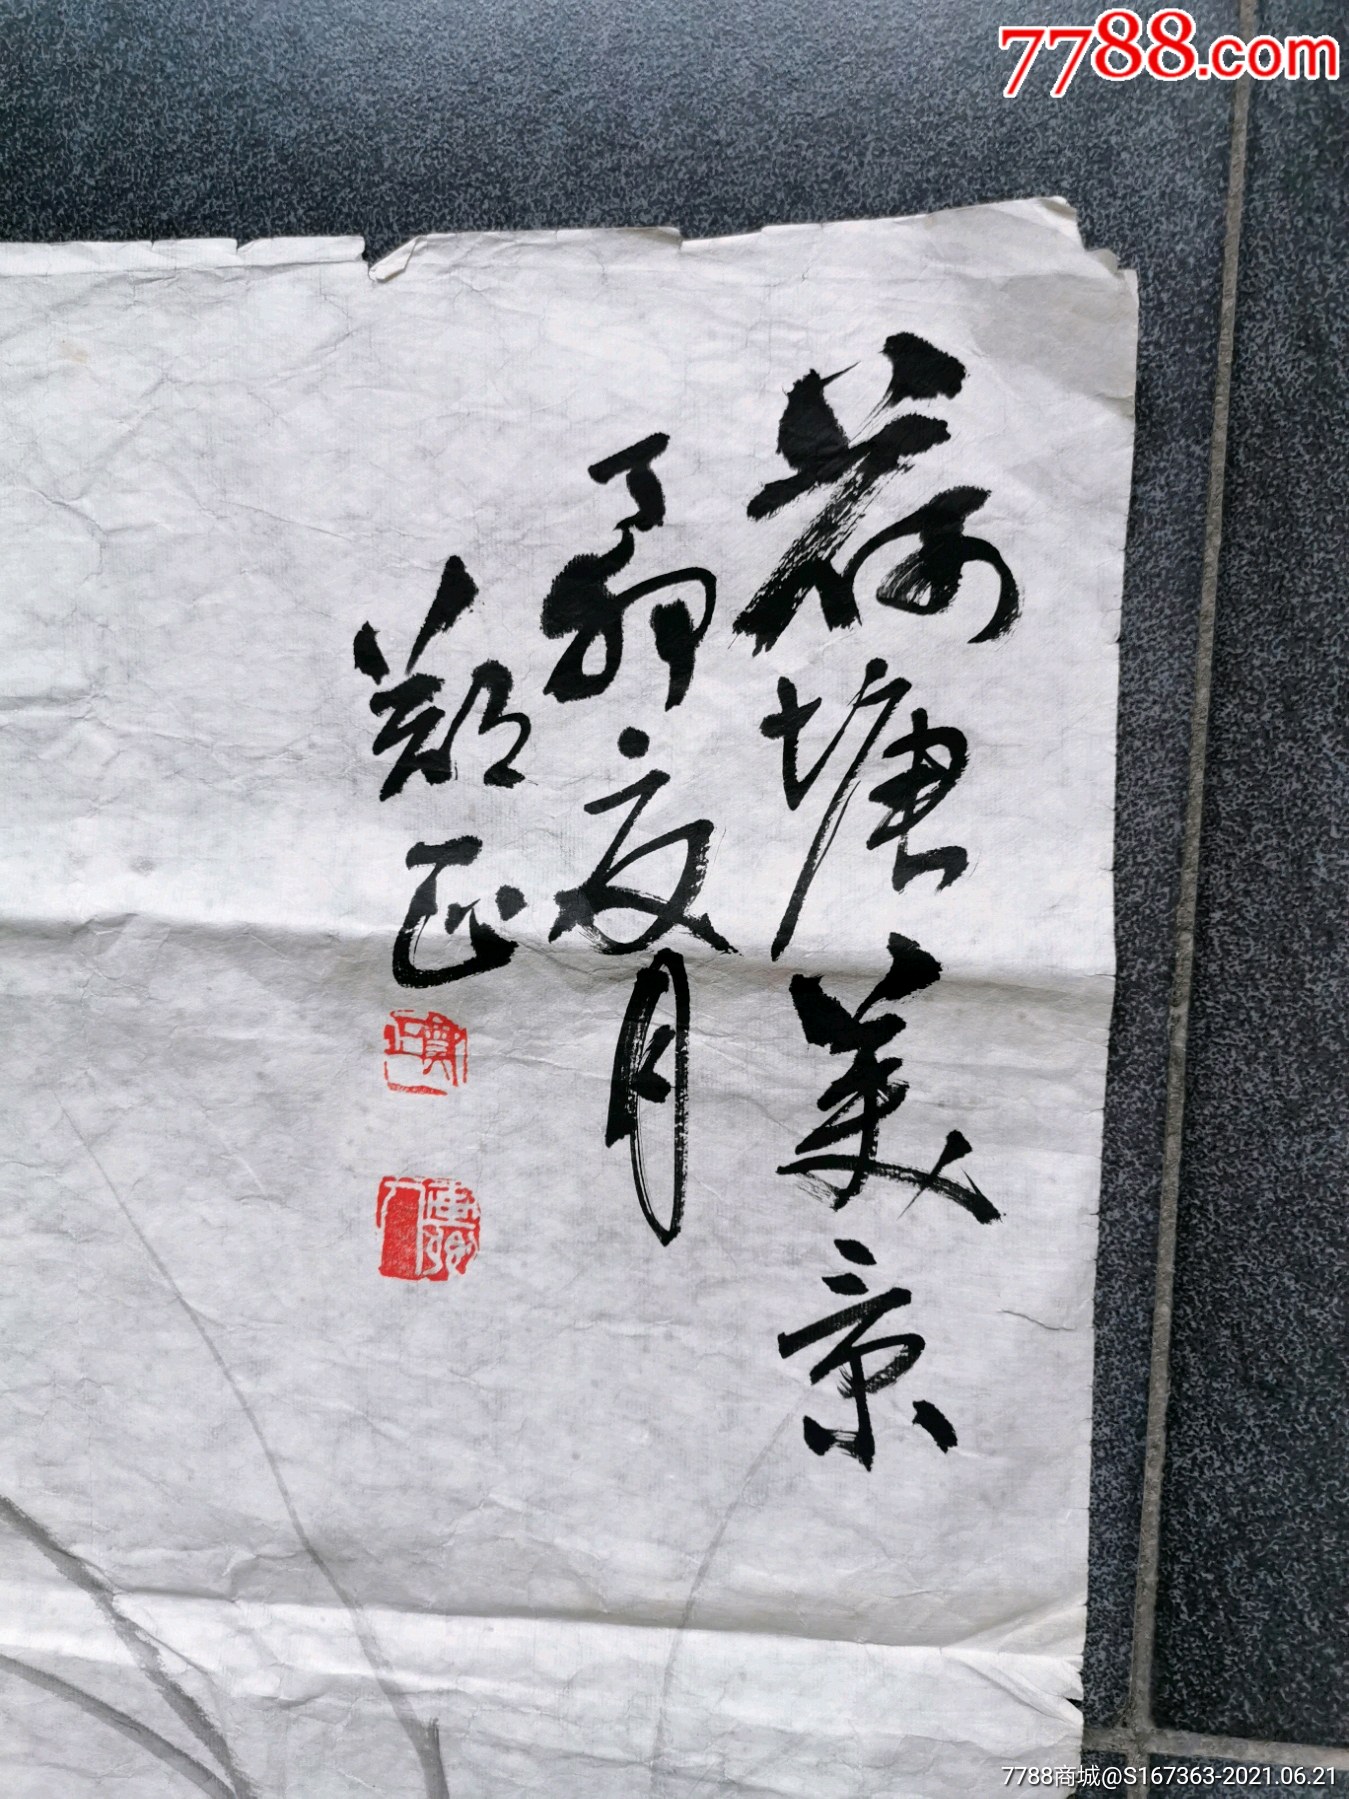 7788.com
荷塘美景
丁卯夏月
郑正
7788商城@S167363-2021.06.21